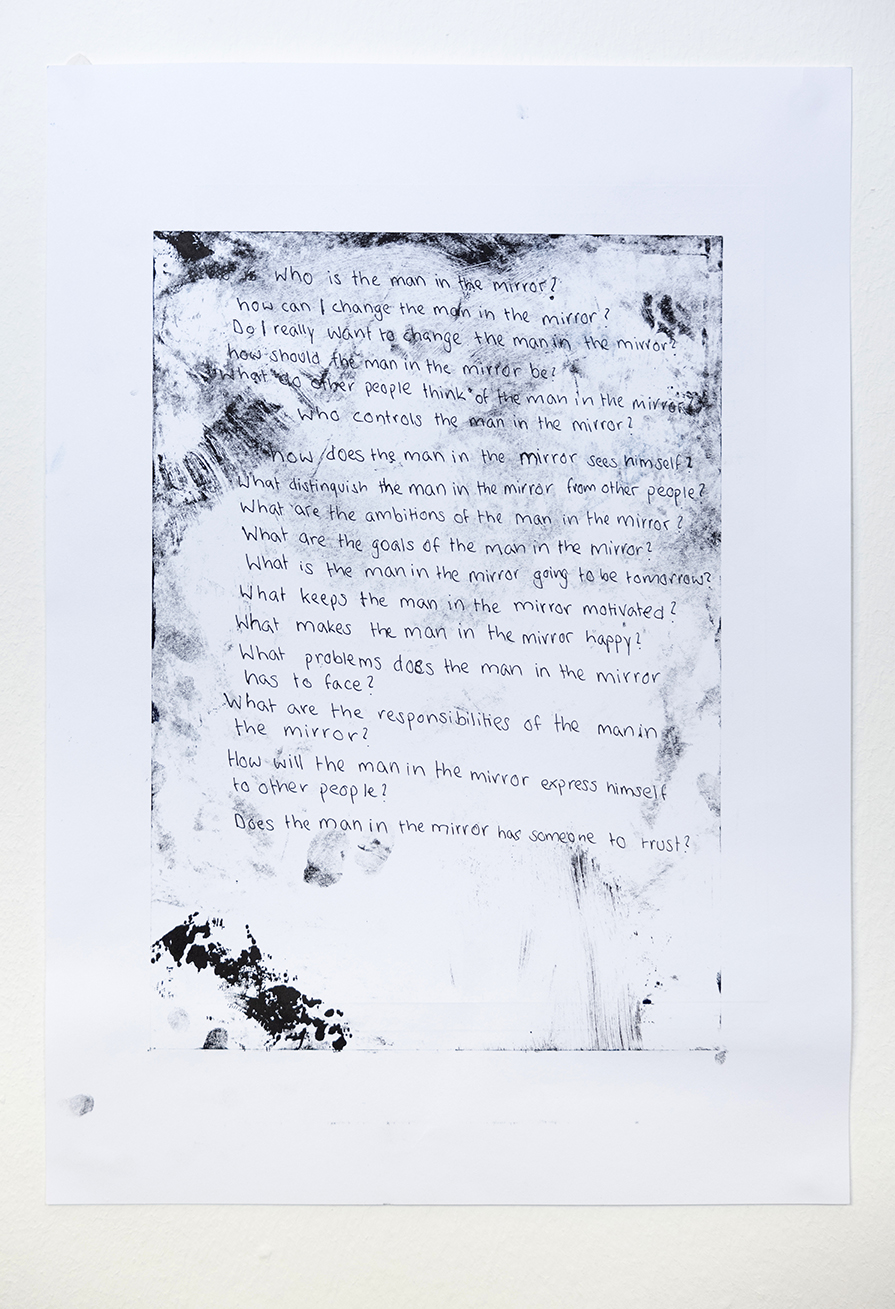 Who is the man in the mirror?
how can I change the man in the mirror?
Do I really want to change the man in the mirror?
how should the man in the mirror be?
What do other people think of the man in the mirror?
Who controls the man in the mirror?
how does the man in the mirror sees himself?
What distinguish the man in the mirror from other people?
What are the ambitions of the man in the mirror?
What are the goals of the man in the mirror?
What is the man in the mirror going to be tomorrow?
What keeps the man in the mirror motivated?
What makes the man in the mirror happy?
What problems does the man in the mirror
has to face?
What are the responsibilities of the man in
the mirror?
How will the man in the mirror express himself
to other people?
Does the man in the mirror has someone to trust?